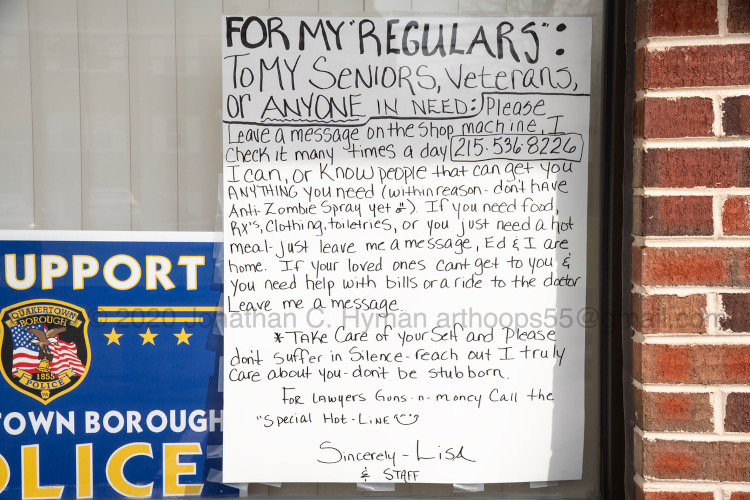 FOR MY "REGULARS":
TO MY SENIORS, Veterans,
or ANYONE IN NEED: Please
Leave a message on the shop machine, I
Check it many times a day 215-536-8226
I can, or Know people that can get you
ANYTHING YOU need (within reason - don't have
Anti-Zombie Spray yet). If you need food,
Rx's, Clothing, toiletries, or you just need a hot
meal - just leave me a message, Ed & I are
home. If your loved ones cant get to you &
you need help with bills or a ride to the doctor
Leave me a message.
* TAKE Care of yourself and Please
don't Suffer in Silence - reach out I truly
Care about you - don't be stubborn.
FOR LAWYERS Guns -n- money Call the
"Special Hot-LINE
Sincerely - Lisa
& STAFF
UPPORT
QUAKERTOWN
BOROUGH
1855
POLICE
TOWN BOROUGH
OLICE
© 2020 Jonathan C. Hyman anthops55@gmail.com